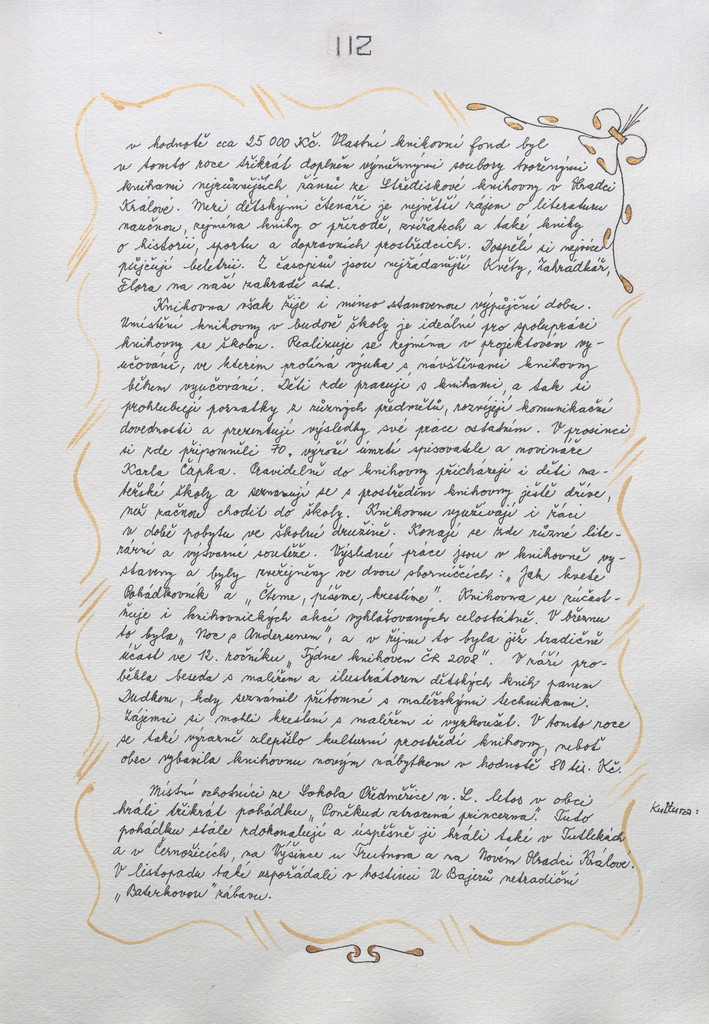 112
v hodnotě cca 25 000 Kč. Vlastní knihovní fond byl
v tomto roce třikrát doplněn výměnnými soubory tvořenými
knihami nejrůznějších žánrů ze Střediskové knihovny v Hradci
Králové. Mezi dětskými čtenáři je největší zájem o literaturu
naučnou, zejména knihy o přírodě, zvířatech a také knihy
o historii, sportu a dopravních prostředcích. Dospělí si nejvíce
půjčují beletrii. Z časopisů jsou nejžádanější Květy, Zahrádkář,
Flora na naší zahradě atd.
Knihovna však žije i mimo stanovenou výpůjční dobu.
Umístění knihovny v budově školy je ideální pro spolupráci
knihovny se školou. Realizuje se zejména v projektovém vy-
učování, ve kterém prolíná výuka s návštěvami knihovny
během vyučování. Děti zde pracují s knihami, a tak si
prohlubují poznatky z různých předmětů, rozvíjejí komunikační
dovednosti a prezentují výsledky své práce ostatním. V prosinci
si zde připomněli 70. výročí úmrtí spisovatele a novináře
Karla Čapka. Pravidelně do knihovny přicházejí i děti ma-
teřské školy a seznamují se s prostředím knihovny ještě dříve,
než začnou chodit do školy. Knihovnu využívají i žáci
v době pobytu ve školní družině. Konají se zde různé lite-
rární a výtvarné soutěže. Výsledné práce jsou v knihovně vy-
staveny a byly zveřejněny ve dvou sbornících: „Jak kvete
Pohádkovník" a „Čteme, píšeme, kreslíme". Knihovna se zúčast-
ňuje i knihovnických akcí vyhlašovaných celostátně. V březnu
to byla „Noc s Andersenem", a v říjnu to byla již tradičně
účast ve 12. ročníku „Týdne knihoven ČR 2008". V září pro-
běhla beseda s malířem a ilustrátorem dětských knih panem
Dudkem, kdy seznámil přítomné s malířskými technikami.
Zájemci si mohli kreslení s malířem i vyzkoušet. V tomto roce
se také výrazně zlepšilo kulturní prostředí knihovny, neboť
obec vybavila knihovnu novým nábytkem v hodnotě 80 tis. Kč.
Místní ochotníci ze Sokola Předměřice n. L. letos v obci
Kultura:
hráli třikrát pohádku „Poněkud ztracená princezna". Tuto
pohádku stále zdokonalují a úspěšně ji hráli také v Tutlekách
a v Černožicích, na Výšince u Trutnova a na Novém Hradci Králové.
V listopadu také uspořádali v hostinci U Bajerů netradiční
„Baterkovou" zábavu.